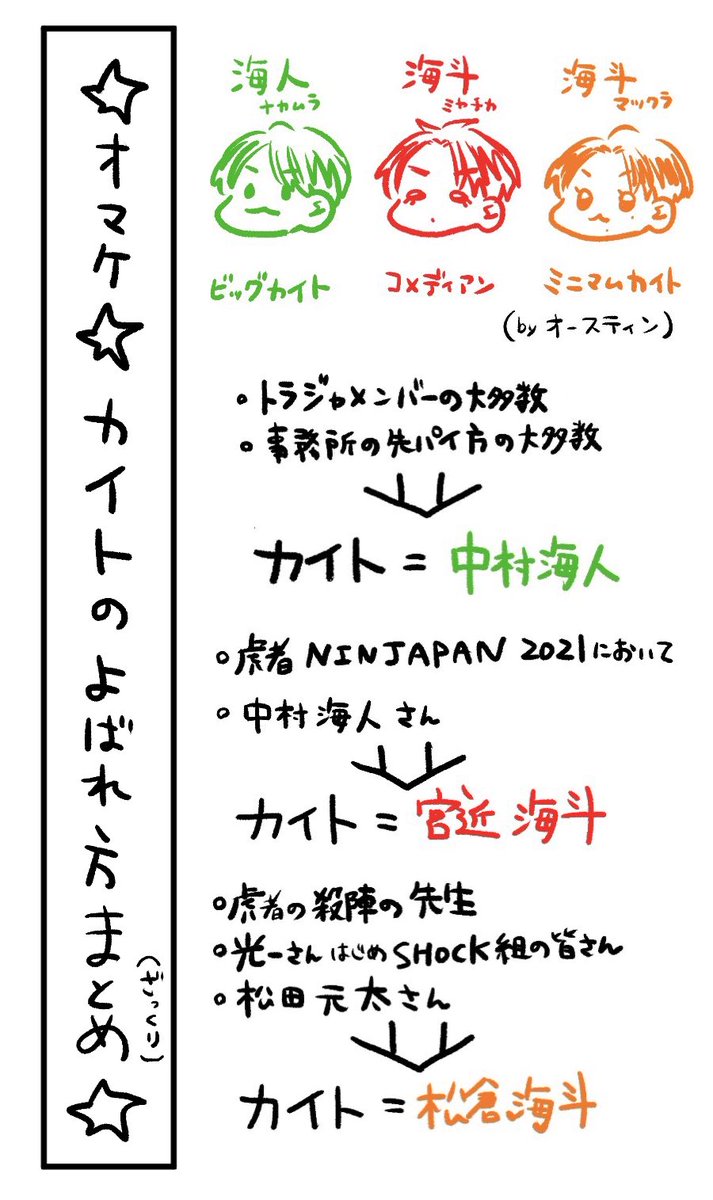 ☆オマケ☆ カイトのよばれ方まとめ☆
(ざっくり)
海人
ナカムラ
ビッグカイト
海斗
ミヤチカ
コメディアン
海斗
マツクラ
ミニマムカイト
(by オースティン)
○トラジャメンバーの大多数
○事務所の先パイ方の大多数
カイト = 中村海人
○虎者 NINJAPAN 2021において
○中村海人さん
カイト = 宮近海斗
○虎者の殺陣の先生
○光一さんはじめSHOCK組の皆さん
○松田元太さん
カイト = 松倉海斗